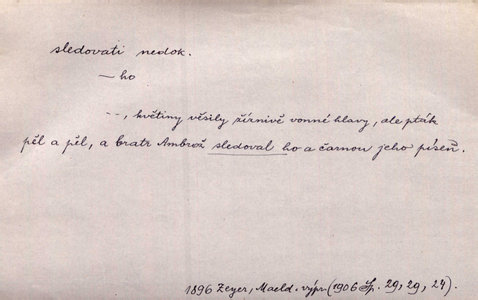 sledovati nedok.
— ho
--, květiny věsily žíznivě vonné hlavy, ale pták
pěl a pěl, a bratr Ambrož sledoval ho a čarnou jeho píseň.
1896 Zeyer, Maeld. výpr. (1906 Sp. 29, 29, 24).